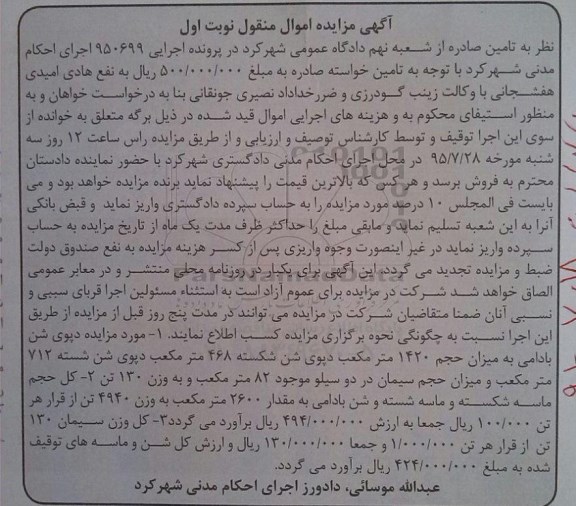 آگهی مزایده اموال منقول نوبت اول
نظر به تامین صادره از شعبه نهم دادگاه عمومی شهرکرد در پرونده اجرایی ۹۵۰۶۹۹ اجرای احکام
مدنی شهرکرد با توجه به تامین خواسته صادره به مبلغ ۵۰۰/۰۰۰/۰۰۰ ریال به نفع هادی امیدی
هفشجانی با وکالت زینب گودرزی و ضررخداداد نصیری جونقانی بنا به درخواست خواهان و به
منظور استیفای محکوم به و هزینه های اجرایی اموال قید شده در ذیل برگه متعلق به خوانده از
سوی این اجرا توقیف و توسط کارشناس توصیف و ارزیابی و از طریق مزایده راس ساعت ۱۲ روز سه
شنبه مورخه ۹۵/۷/۲۸ در محل اجرای احکام مدنی دادگستری شهرکرد با حضور نماینده دادستان
محترم به فروش برسد و هر کس که بالاترین قیمت را پیشنهاد نماید برنده مزایده خواهد بود و می
بایست فی المجلس ۱۰ درصد مورد مزایده را به حساب سپرده دادگستری واریز نماید و قبض بانکی
آنرا به این شعبه تسلیم نماید و مابقی مبلغ را حداکثر ظرف مدت یک ماه از تاریخ مزایده به حساب
سپرده واریز نماید در غیر اینصورت وجوه واریزی پس از کسر هزینه مزایده به نفع صندوق دولت
ضبط و مزایده تجدید می گردد. این آگهی برای یکبار در روزنامه محلی منتشر و در معابر عمومی
الصاق خواهد شد شرکت در مزایده برای عموم آزاد است به استثناء مسئولین اجرا قربای سببی و
نسبی آنان ضمنا متقاضیان شرکت در مزایده می توانند در مدت پنج روز قبل از مزایده از طریق
این اجرا نسبت به چگونگی نحوه برگزاری مزایده کسب اطلاع نمایند. ۱- مورد مزایده دپوی شن
بادامی به میزان حجم ۱۴۲۰ متر مکعب دپوی شن شکسته ۴۶۸ متر مکعب دپوی شن شسته ۷۱۲
متر مکعب و میزان حجم سیمان در دو سیلو موجود ۸۲ متر مکعب و به وزن ۱۳۰ تن ۲- کل حجم
ماسه شکسته و ماسه شسته و شن بادامی به مقدار ۲۶۰۰ متر مکعب به وزن ۴۹۴۰ تن از قرار هر
تن ۱۰۰/۰۰۰ ریال جمعا به ارزش ۴۹۴/۰۰۰/۰۰۰ ریال برآورد می گردد۳- کل وزن سیمان ۱۳۰
تن از قرار هر تن ۱/۰۰۰/۰۰۰ و جمعا ۱۳۰/۰۰۰/۰۰۰ ریال و ارزش کل شن و ماسه های توقیف
شده به مبلغ ۴۲۴/۰۰۰/۰۰۰ ریال برآورد می گردد.
عبدالله موسائی، دادورز اجرای احکام مدنی شهرکرد